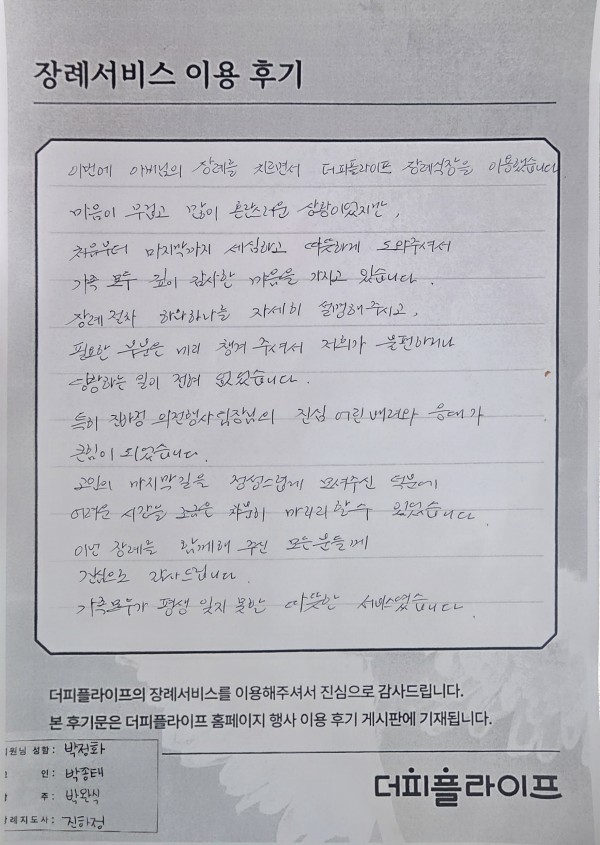 장례서비스 이용 후기
이번에 아버님의 장례를 치르면서 더피플라이프 장례식장을 이용했습니다
마음이 무겁고 많이 혼란스러운 상황이었지만,
처음부터 마지막까지 세심하고 따뜻하게 도와주셔서
가족 모두 깊이 감사한 마음을 가지고 있습니다.
장례 절차 하나하나를 자세히 설명해 주시고,
필요한 부분은 미리 챙겨 주셔서 저희가 불편하거나
당황하는 일이 전혀 없었습니다.
특히 진하정 의전행사팀장님의 진심 어린 배려와 응대가
큰힘이 되었습니다.
고인의 마지막길을 정성스럽게 모셔주신 덕분에
어려운 시간을 조금은 차분히 마무리 할 수 있었습니다.
이번 장례를 함께해 주신 모든분들께
진심으로 감사드립니다.
가족모두가 평생 잊지 못할 따뜻한 서비스였습니다.
더피플라이프의 장례서비스를 이용해주셔서 진심으로 감사드립니다.
본 후기문은 더피플라이프 홈페이지 행사 이용 후기 게시판에 기재됩니다.
회원님 성함: 박정화
인: 박종태
주: 박완식
장례지도사: 진하정
더피플라이프